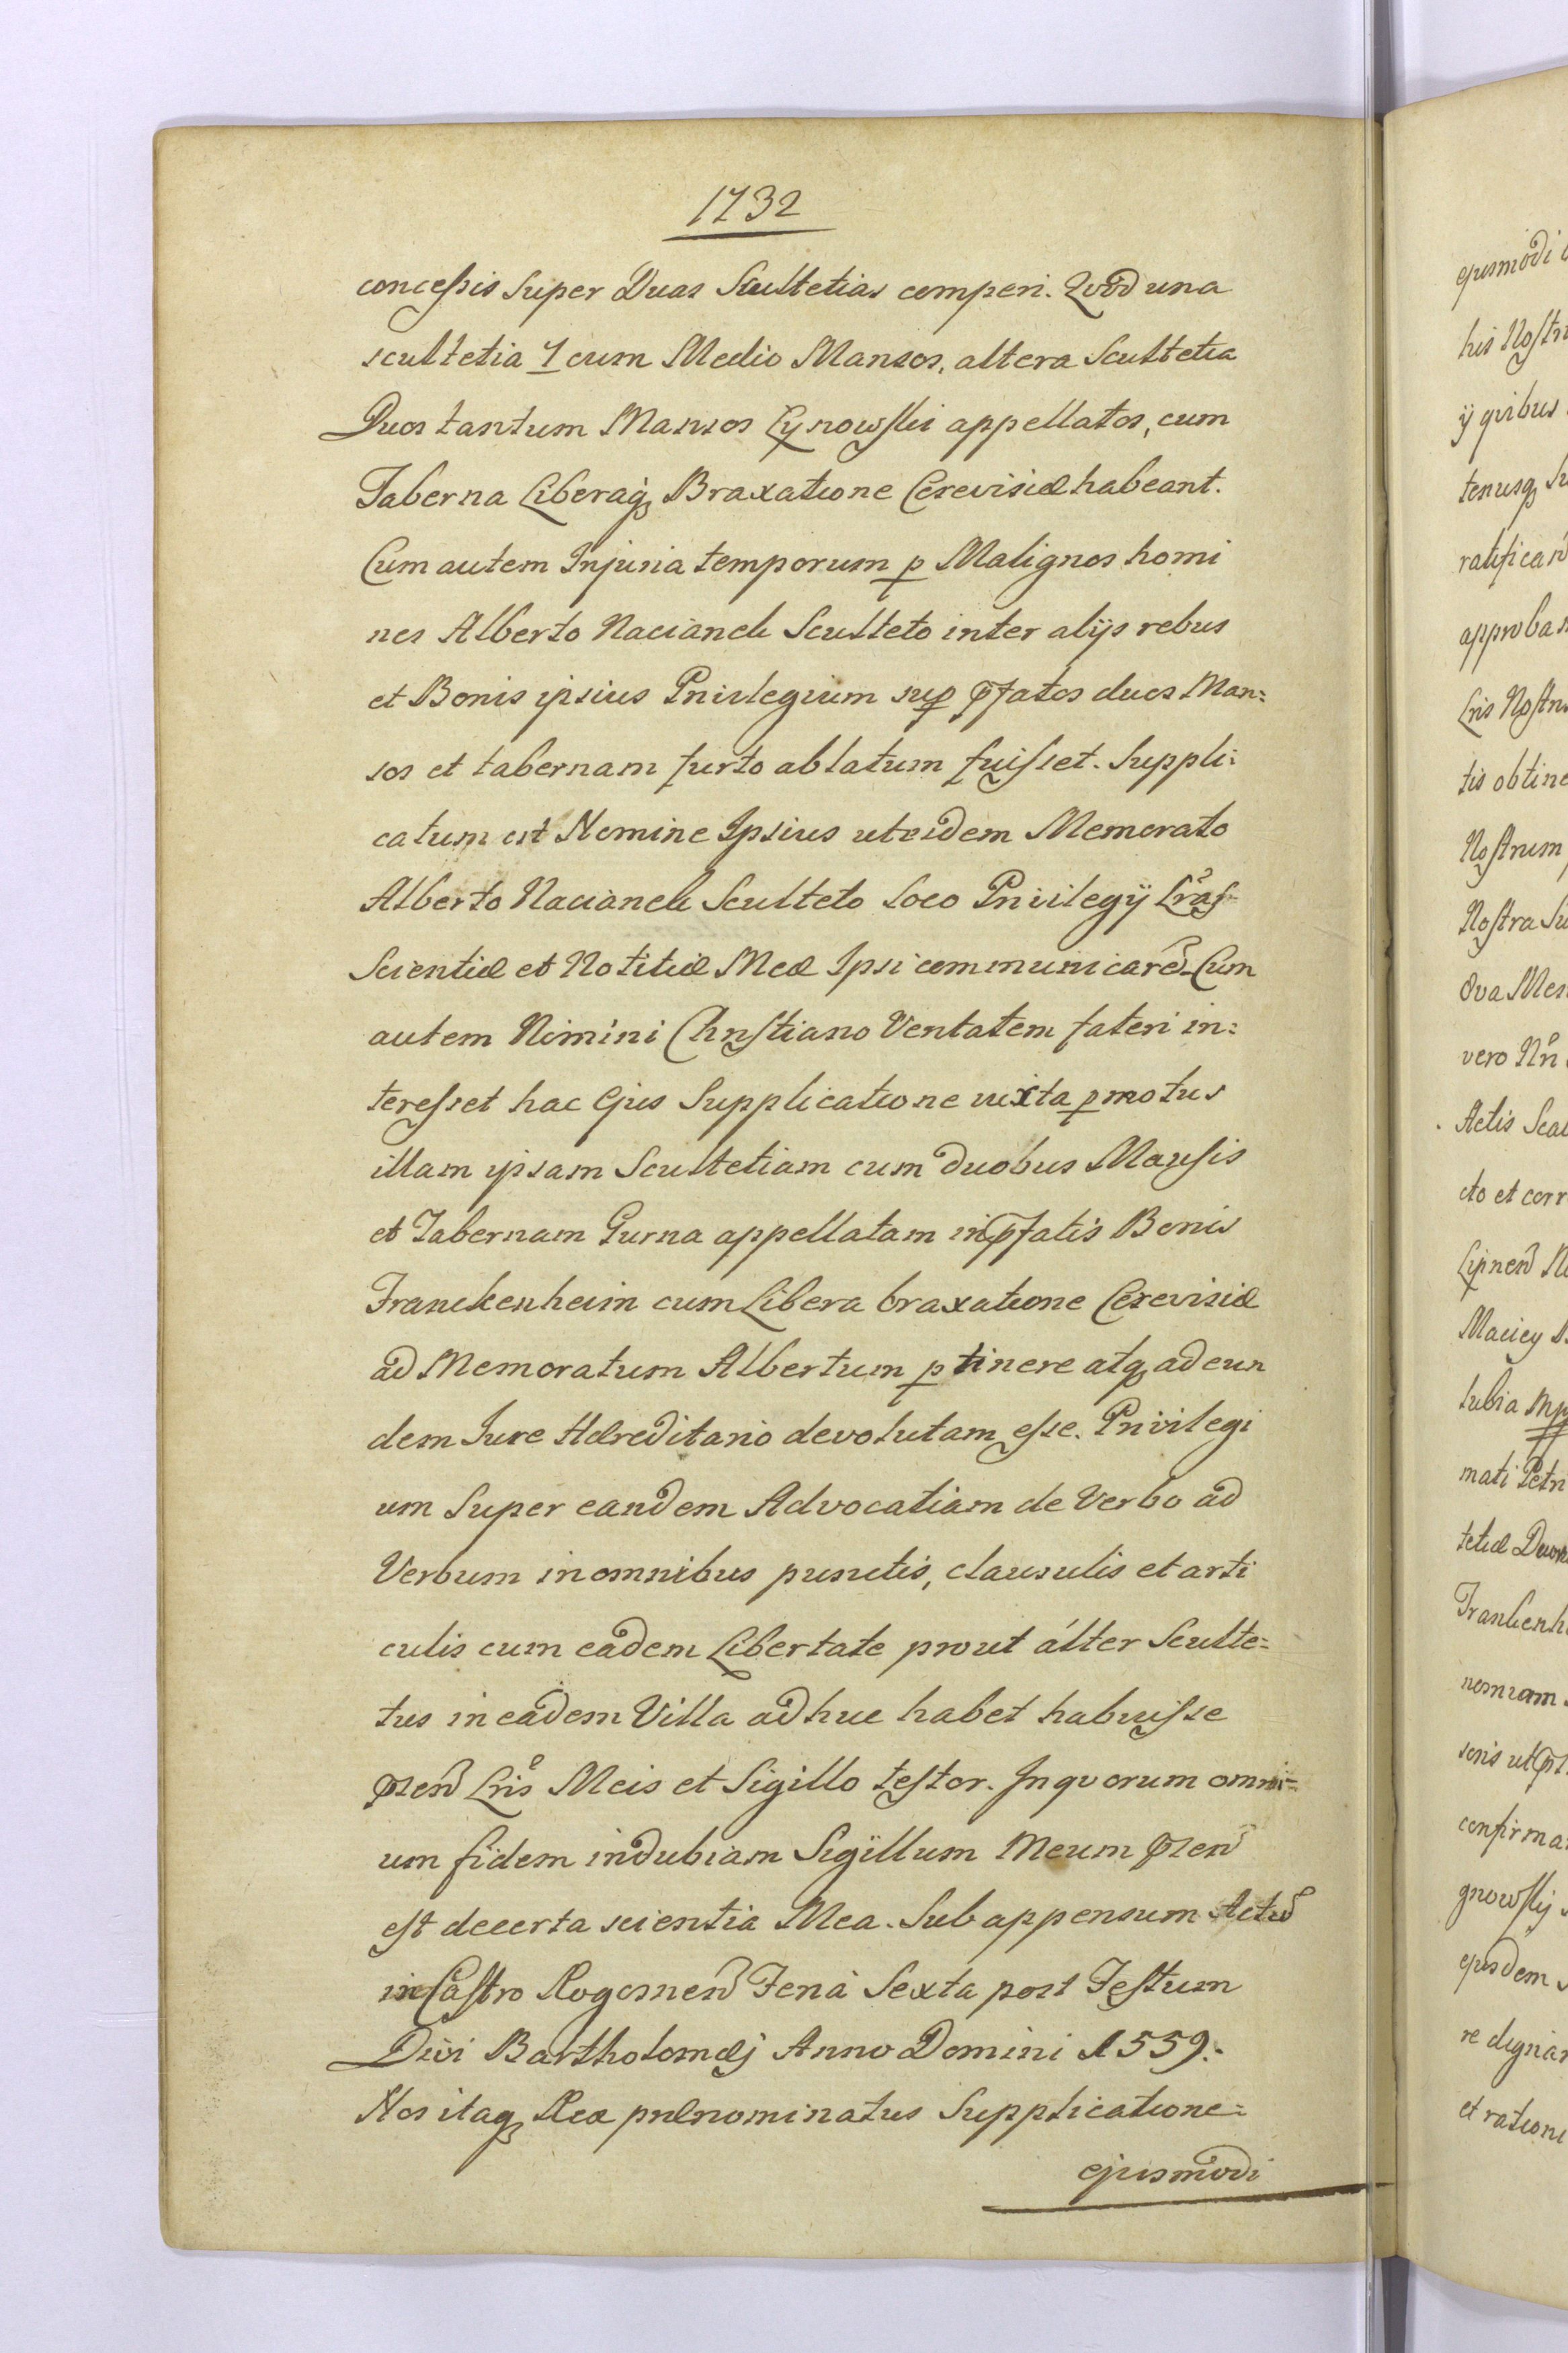 1732
concessis Super Duas Scultetias comperi. Qvod una
scultetia 1 cum Medio Mansos, altera Scultetia
Duos tantum Mansos Lynowskie appellatos, cum
Taberna Liberaq Braxatione Cerevisiæ habeant.
Cum autem Injuria temporum p Malignos homi
nes Alberto Nacianek Sculteto inter alijs rebus
et Bonis ipsius Privilegium sup pfatos duos Man=
sos et tabernam furto ablatum fuisset. Suppli=
catum est Nomine Ipsius ut eidem Memorato
Alberto Nacianek Sculteto Loco Privilegÿ Lras
Scientiæ et Notitiæ Meæ Ipsi communicare. Cum
autem Nimini Christiano Veritatem fateri in=
teresset hac Ejus Supplicatione iuxta pmotus
illam ipsam Scultetiam cum duobus Mansis
et Tabernam Gurna appellatam in pfatis Bonis
Franckenheim cum Libera braxatione Cerevisiæ
ad Memoratum Albertum ptinere atq ad eun
dem Jure Hæreditario devolutam esse. Privilegi
um Super eandem Advocatiam de Verbo ad
Verbum in omnibus punctis, clausulis et arti
culis cum eadem Libertate prout álter Sculte=
tus in eadem Villa ad huc habet habuisse
psen Lris Meis et Sigillo testor. In qvorum omni=
um fidem indubiam Sigillum Meum psen
est de certa scientia Mea. Sub appensum Actu
in Castro Rogosnen Feria Sexta post Festum
Divi Bartholomæj Anno Domini 1559.
Nos itaq Rex prænominatus Supplicatione=
ejusmodi